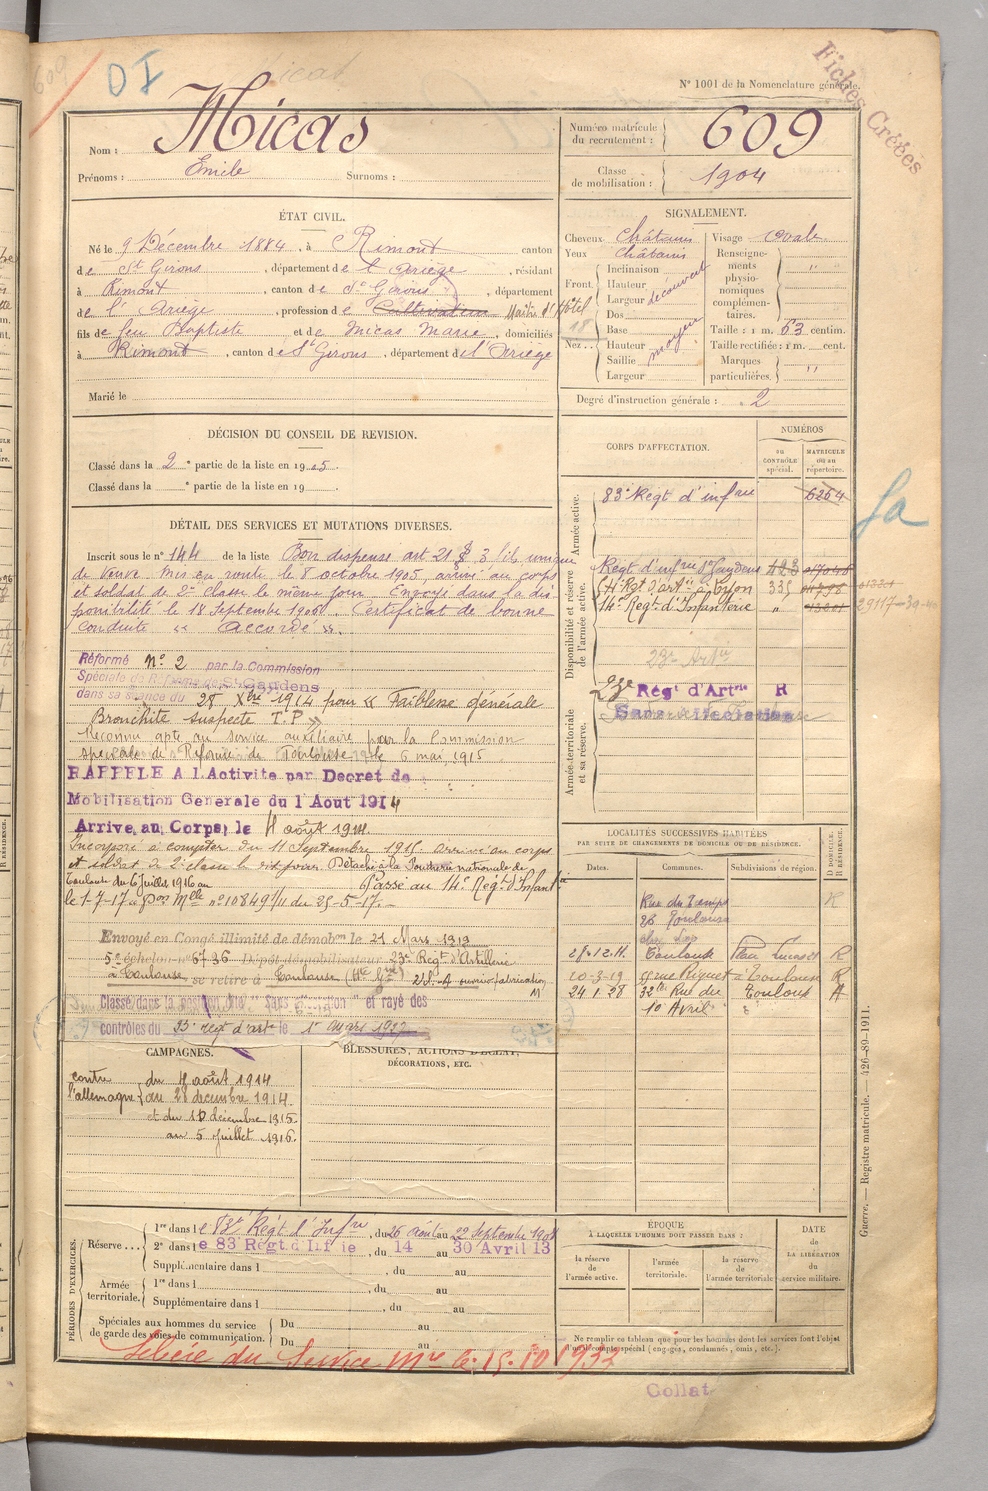 609
DI
N° 1001 de la Nomenclature générale.
Fiches Créées
Nom : Micas
Prénoms : Emile Surnoms :
Numéro matricule du recrutement : 609
Classe de mobilisation : 1904
ÉTAT CIVIL.
Né le 9 Décembre 1884, à Rimont canton
de St Girons, département de l'Ariège, résidant
à Rimont, canton de St Girons, département
de l'Ariège, profession de Cultivateur Maître d'Hôtel
fils de feu Baptiste et de Micas Marie, domiciliés
à Rimont, canton de St Girons, département de l'Ariège
Marié le
SIGNALEMENT.
Cheveux Châtains
Yeux Châtains
Front. Inclinaison
Hauteur
Largeur découvert
Nez.. Dos
Base
Hauteur moyen
Saillie
Largeur
Visage Ovale
Renseignements physionomiques complémentaires. "
Taille : 1 m. 63 centim.
Taille rectifiée : 1 m. cent.
Marques particulières. "
Degré d'instruction générale : 2
DÉCISION DU CONSEIL DE REVISION.
Classé dans la 2e partie de la liste en 1905.
Classé dans la e partie de la liste en 19
DÉTAIL DES SERVICES ET MUTATIONS DIVERSES.
Inscrit sous le n° 144 de la liste Bon dispense art 21 § 3 fils unique
de Veuve Mis en route le 8 octobre 1905, arrivé au corps
et soldat de 2e classe le même jour. Envoyé dans la dis
ponibilité le 18 Septembre 1906. Certificat de bonne
conduite « Accordé ».
Réformé n° 2 par la Commission
Spéciale de Réforme de St Gaudens
dans sa séance du 28 Xbre 1914 pour « Faiblesse générale
Bronchite suspecte T.P »
Reconnu apte au service auxiliaire par la Commission
spéciale de Réforme de Toulouse le 6 mai 1915
RAPPELE A l'Activite par Decret de
Mobilisation Generale du 1 Aout 1914
Arrive au Corps le 4 août 1914.
Incorporé à compter du 11 Septembre 1915. arrivé au corps
et soldat de 2e classe le dit jour. Détaché à la Poudrerie nationale de
Toulouse du 6 Juillet 1916 au
Passé au 14e Regt d'Infant
le 1-7-17 don Mlle n° 10849 du 25-5-17.
Envoyé en Congé illimité de démobon le 21 Mars 1919
5e échelon n° 6736 Dépôt démobilisateur 23e Regt d'Artillerie
à Toulouse se retire à Toulouse
Classé dans la position dite "Sans affectation" et rayé des
contrôles du 23e régt d'artie le 1er Mars 1927
CORPS D'AFFECTATION.
NUMÉROS
au CONTRÔLE spécial.
MATRICULE ou au répertoire.
Armée active.
83e Régt d'infrie 6264
Disponibilité et réserve de l'armée active.
Regt d'infrie St Gaudens
14e Regt d'Infanterie " 29117
23e Artie
Armée territoriale et sa réserve.
23e Régt d'Artie R
Sans affectation
LOCALITÉS SUCCESSIVES HABITÉES
PAR SUITE DE CHANGEMENTS DE DOMICILE OU DE RÉSIDENCE.
Dates. Communes. Subdivisions de région. D DOMICILE. R RÉSIDENCE.
Toulouse R
10-3-19 rue Riquet à Toulouse R
24 1 28 32 Rue du Toulouse
10 Avril
CAMPAGNES.
contre l'allemagne du 4 août 1914
au 28 décembre 1914
et du 10 décembre 1915
au 5 Juillet 1916.
BLESSURES, ACTIONS D'ÉCLAT,
DÉCORATIONS, ETC.
PÉRIODES D'EXERCICES.
Réserve... 1re dans le 83e Régt d'Infrie, du 26 août au 22 Septembre 1908
2e dans le 83 Régt d'Infrie, du 14 au 30 Avril 13
Supplémentaire dans l , du au
Armée territoriale. 1re dans l , du au
Supplémentaire dans l , du au
Spéciales aux hommes du service de garde des voies de communication. Du au
Du au
ÉPOQUE
À LAQUELLE L'HOMME DOIT PASSER DANS :
la réserve de l'armée active.
l'armée territoriale.
la réserve de l'armée territoriale
DATE DE LA LIBÉRATION du service militaire.
Ne remplir ce tableau que pour les hommes dont les services font l'objet d'un décompte spécial (engagés, condamnés, omis, etc.).
Libéré du Service Mre le 15.10 1933
Collat
Guerre. — Registre matricule. — 426-89-1911.